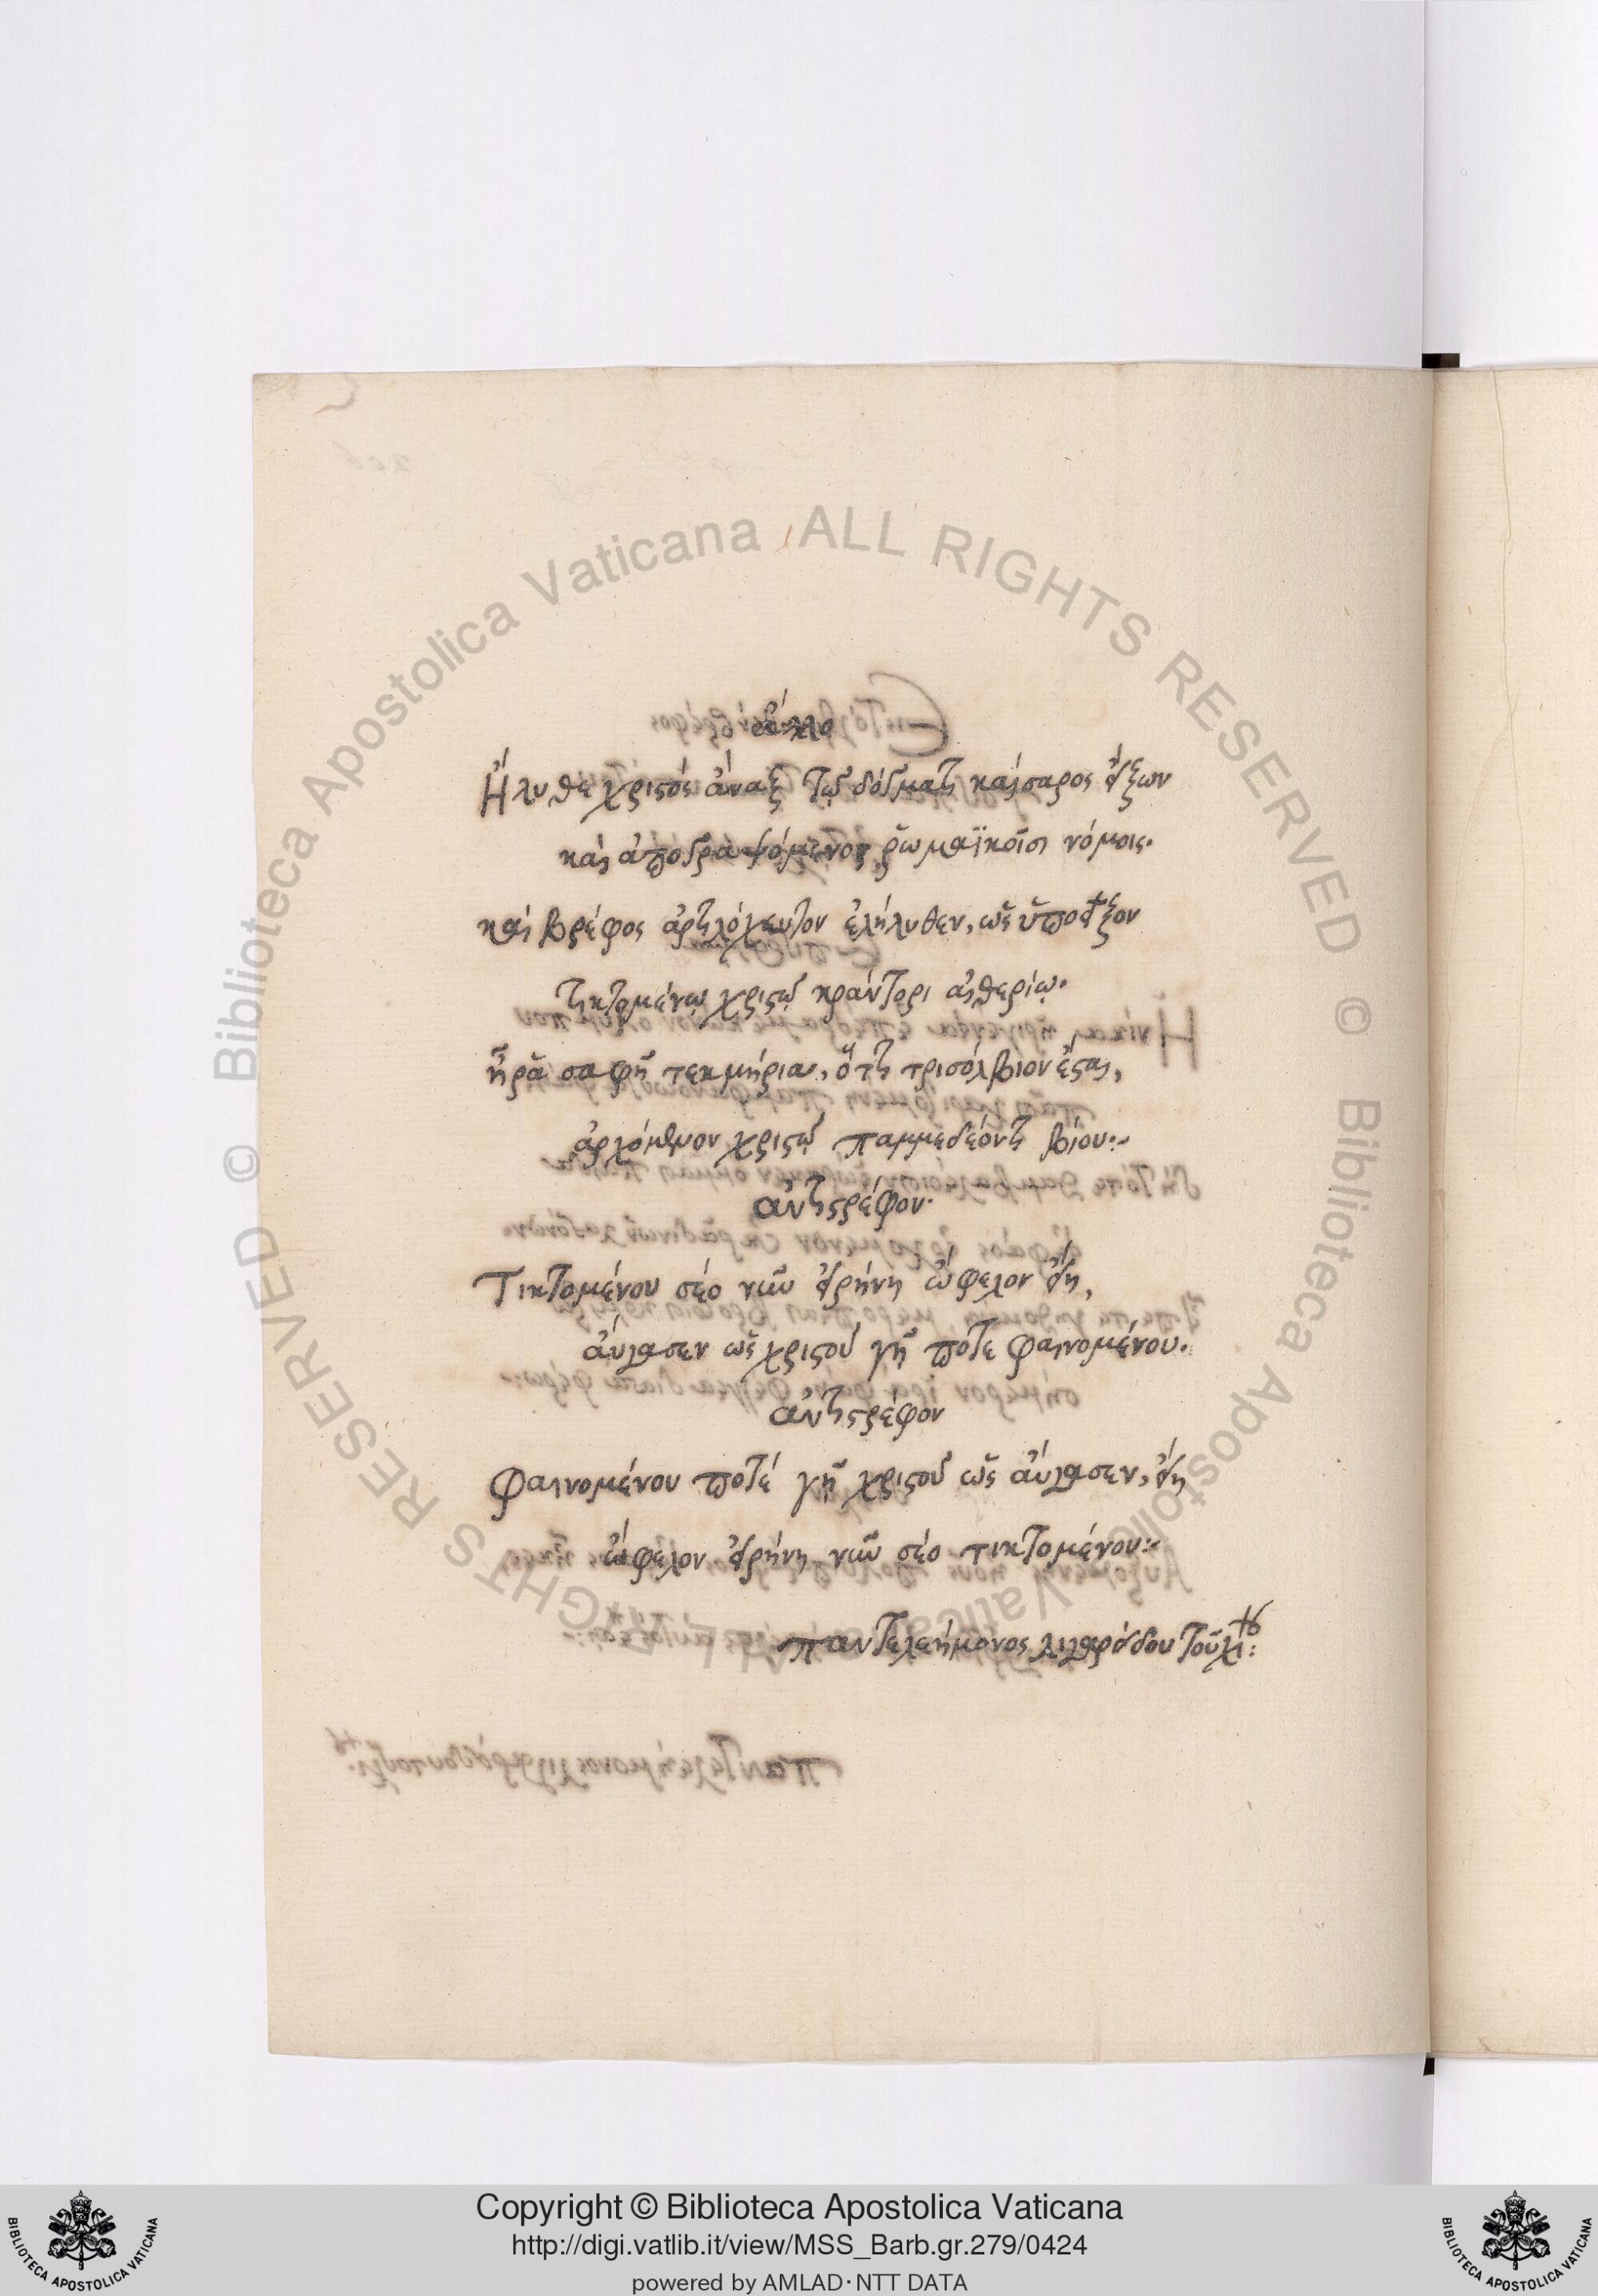 ἄλλο
Ἤλυθε χριστός ἄναξ τῷ δόγματι καίσαρος εἴξων
καὶ ἀπογραψόμενος ῥωμαϊκοῖσι νόμοις.
καὶ βρέφος ἀρτιλόχευτον ἐλήλυθεν, ὡς ὑποεῖξον
τικτομένῳ χριστῷ κράντορι αἰθερίῳ.
ἦ ῥὰ σαφῆ τεκμήρια, ὅτι τρισόλβιον ἔσται,
ἀρχόμενον χριστῷ παμμεδέοντι βίου:~
ἀντιστρέφον.
Τικτομένου σέο νῦν εἰρήνη ὤφελον εἴη,
αὔγασεν ὡς χριστοῦ γῇ ποτε φαινομένου.
ἀντιστρέφον
Φαινομένου ποτέ γῇ χριστοῦ ὡς αὔγασεν, εἴη
ὤφελον εἰρήνη νῦν σέο τικτομένου:~
παντελεήμονος λιγαρίδου τοῦ χίου:
Copyright © Biblioteca Apostolica Vaticana
http://digi.vatlib.it/view/MSS_Barb.gr.279/0424
powered by AMLAD·NTT DATA
© Biblioteca Apostolica Vaticana ALL RIGHTS RESERVED
© Biblioteca Apostolica Vaticana ALL RIGHTS RESERVED
BIBLIOTECA APOSTOLICA VATICANA
BIBLIOTECA APOSTOLICA VATICANA